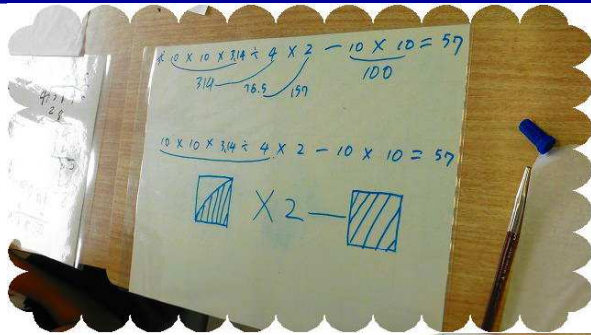 10 × 10 × 3.14 ÷ 4 × 2 − 10 × 10 = 57
314 78.5 157 100
10 × 10 × 3.14 ÷ 4 × 2 − 10 × 10 = 57
× 2 −